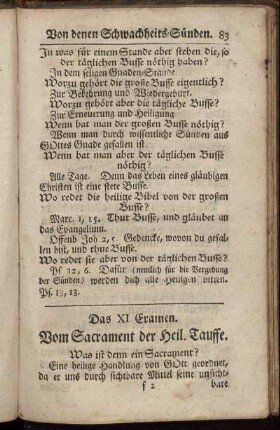 Von denen Schwachheits-Sünden. 83
In was für einem Stande aber stehen die, so
der täglichen Busse nöthig haben?
In dem seligen Gnaden-Stande.
Worzu gehört die grosse Busse eigentlich?
Zur Bekehrung und Wiedergeburt.
Worzu gehört aber die tägliche Busse?
Zur Erneuerung und Heiligung
Wenn hat man der grossen Busse nöthig?
Wenn man durch wissentliche Sünden aus
GOttes Gnade gefallen ist.
Wenn hat man aber der täglichen Busse
nöthig?
Alle Tage. Denn das Leben eines gläubigen
Christen ist eine stete Busse.
Wo redet die heilige Bibel von der grossen
Busse?
Marc. 1, 15. Thut Busse, und gläubet an
das Evangelium.
Offenb Joh 2, 5. Gedencke, wovon du gefal-
len bist, und thue Busse.
Wo redet sie aber von der täglichen Busse?
Ps 32, 6. Dafür (nemlich für die Vergebung
der Sünden) werden dich alle Heiligen bitten.
Ps. 19, 13.
Das XI Examen.
Vom Sacrament der Heil. Tauffe.
Was ist denn ein Sacrament?
Eine heilige Handlung von GOtt geordnet,
da er uns durch sichtbare Mittel seine unsicht-
f 2 bare